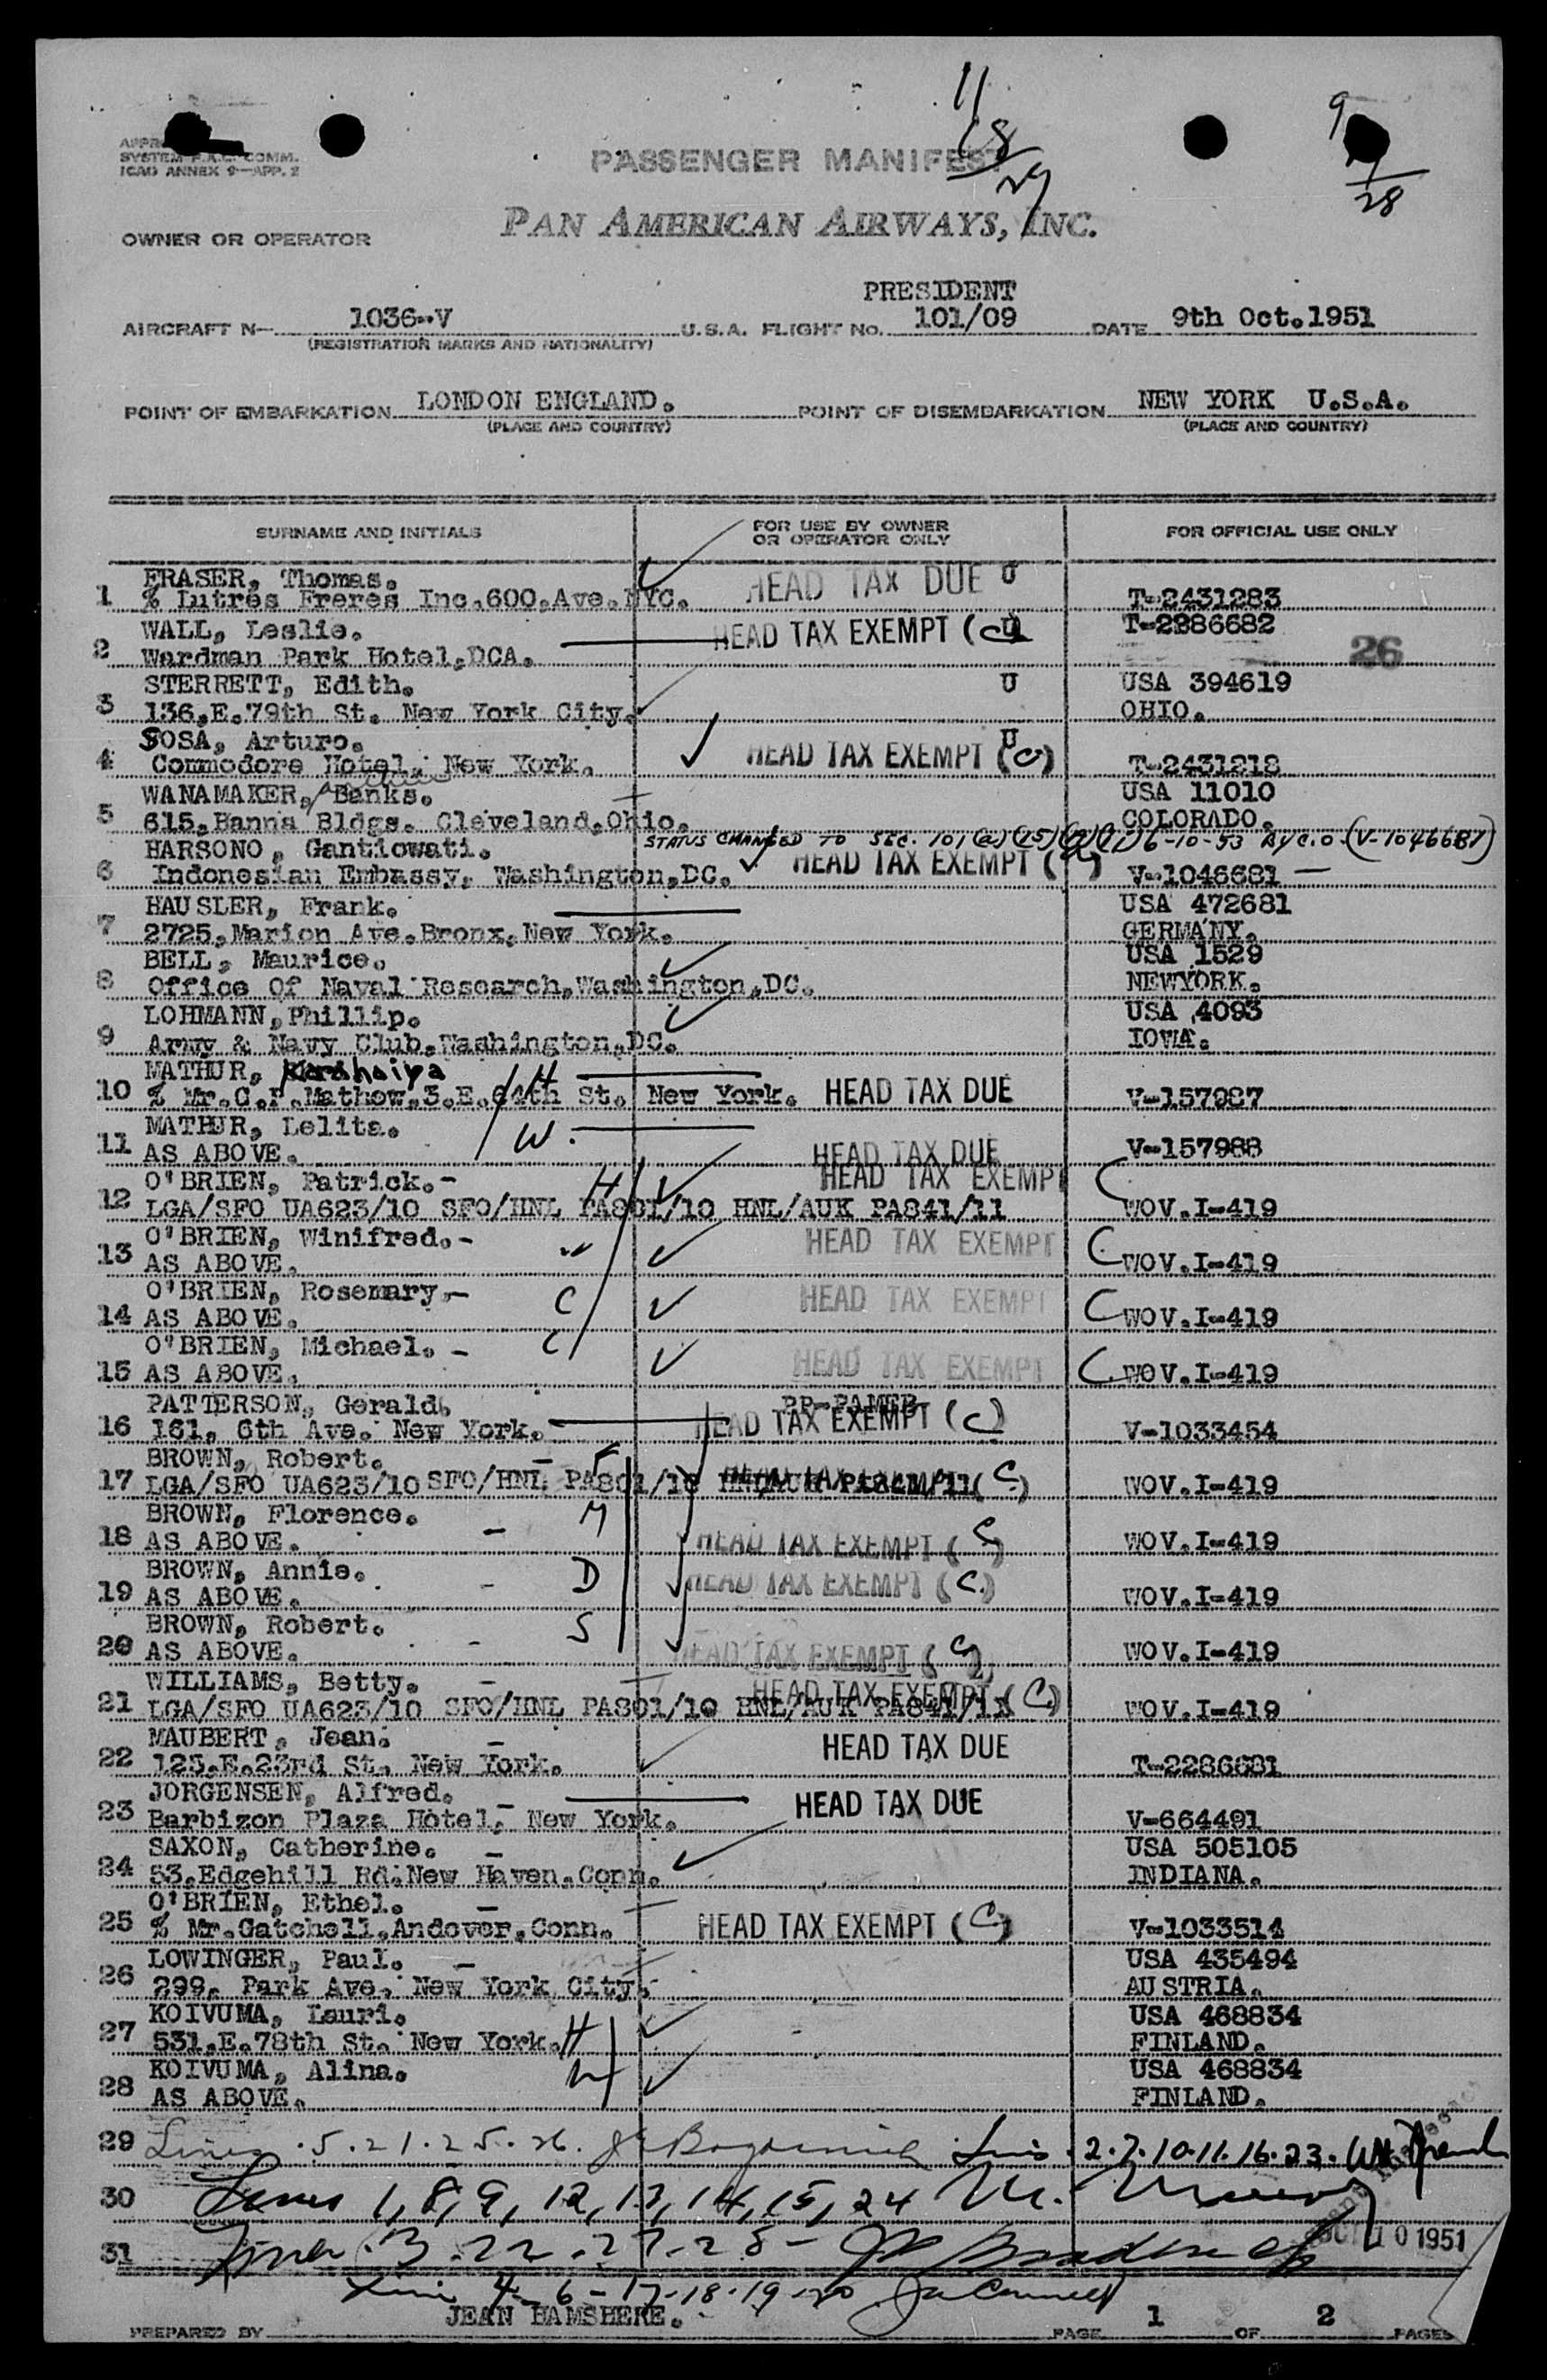 11
18/29
9
28
SYSTEM F.A.C. COMM.
ICAO ANNEX 9—APP. 2
PASSENGER MANIFEST
PAN AMERICAN AIRWAYS, INC.
OWNER OR OPERATOR
PRESIDENT
AIRCRAFT N— 1036--V U.S.A. FLIGHT No. 101/09 DATE 9th Oct.1951
(REGISTRATION MARKS AND NATIONALITY)
POINT OF EMBARKATION LONDON ENGLAND. POINT OF DISEMBARKATION NEW YORK U.S.A.
(PLACE AND COUNTRY) (PLACE AND COUNTRY)
SURNAME AND INITIALS FOR USE BY OWNER OR OPERATOR ONLY FOR OFFICIAL USE ONLY
FRASER, Thomas. HEAD TAX DUE U
1 % Lutres Freres Inc.600.Ave.NYC. T-2431283
WALL, Leslie. HEAD TAX EXEMPT (C) T-2286682
2 Wardman Park Hotel,DCA. 26
STERRETT, Edith. U USA 394619
3 136.E.79th St. New York City. OHIO.
SOSA, Arturo. U
4 Commodore Hotel. New York. HEAD TAX EXEMPT (C) T-2431218
WANAMAKER, Banks. USA 11010
5 615.Hanna Bldgs. Cleveland.Ohio. COLORADO.
STATUS CHANGED TO SEC. 101(a)(15) 6-10-53 (V-1046681)
HARSONO, Gantiowati. HEAD TAX EXEMPT
6 Indonesian Embassy, Washington,DC. V-1046681
HAUSLER, Frank. USA 472681
7 2725.Marion Ave.Bronx.New York. GERMANY.
BELL, Maurice. USA 1529
8 Office Of Naval Research,Washington,DC. NEWYORK.
LOHMANN,Phillip. USA 4093
9 Army & Navy Club.Washington,DC. IOWA.
MATHUR, H
10 % Mr.C.P.Mathow.3.E.64th St. New York. HEAD TAX DUE V-157987
MATHUR, Lelita. W.
11 AS ABOVE. HEAD TAX DUE V-157988
O'BRIEN, Patrick.- H HEAD TAX EXEMPT C
12 LGA/SFO UA623/10 SFO/HNL PA801/10 HNL/AUK PA841/11 WOV.I-419
O'BRIEN, Winifred.- W HEAD TAX EXEMPT C
13 AS ABOVE. WOV.I-419
O'BRIEN, Rosemary.- C HEAD TAX EXEMPT C
14 AS ABOVE. WOV.I-419
O'BRIEN, Michael. - C
15 AS ABOVE. HEAD TAX EXEMPT C WOV.I-419
PATTERSON, Gerald.
16 161. 6th Ave. New York. HEAD TAX EXEMPT (C) V-1033454
BROWN, Robert. - F
17 LGA/SFO UA623/10 SFO/HNL PA801/10 HNL/AUK PA841/11 (C) WOV.I-419
BROWN, Florence. - M
18 AS ABOVE. HEAD TAX EXEMPT (C) WOV.I-419
BROWN, Annie. - D HEAD TAX EXEMPT (C.)
19 AS ABOVE. WOV.I-419
BROWN, Robert. - S
20 AS ABOVE. HEAD TAX EXEMPT (C) WOV.I-419
WILLIAMS, Betty. - HEAD TAX EXEMPT (C)
21 LGA/SFO UA623/10 SFO/HNL PA801/10 HNL/AUK PA841/11 WOV.I-419
MAUBERT, Jean. - HEAD TAX DUE
22 125.E.23rd St. New York. T-2286681
JORGENSEN, Alfred. - HEAD TAX DUE
23 Barbizon Plaza Hotel, New York. V-664491
SAXON, Catherine. - USA 505105
24 53.Edgehill Rd.New Haven.Conn. INDIANA.
O'BRIEN, Ethel. -
25 % Mr.Gatchell.Andover.Conn. HEAD TAX EXEMPT (C) V-1033514
LOWINGER, Paul. - USA 435494
26 299. Park Ave. New York City. AUSTRIA.
KOIVUMA, Lauri. USA 468834
27 531.E.78th St. New York. H FINLAND.
KOIVUMA, Alina. W USA 468834
28 AS ABOVE. FINLAND.
29 Lines .5.21.25.26. Lines .2.7.10.11.16.23.
30 Lines 1,8,9,12,13,14,15,24 M.
31 Lines .3.22.27.28- OCT 10 1951
Lines 4-6-17-18-19-20
JEAN BAMSHERE.
PREPARED BY PAGE 1 OF 2 PAGES